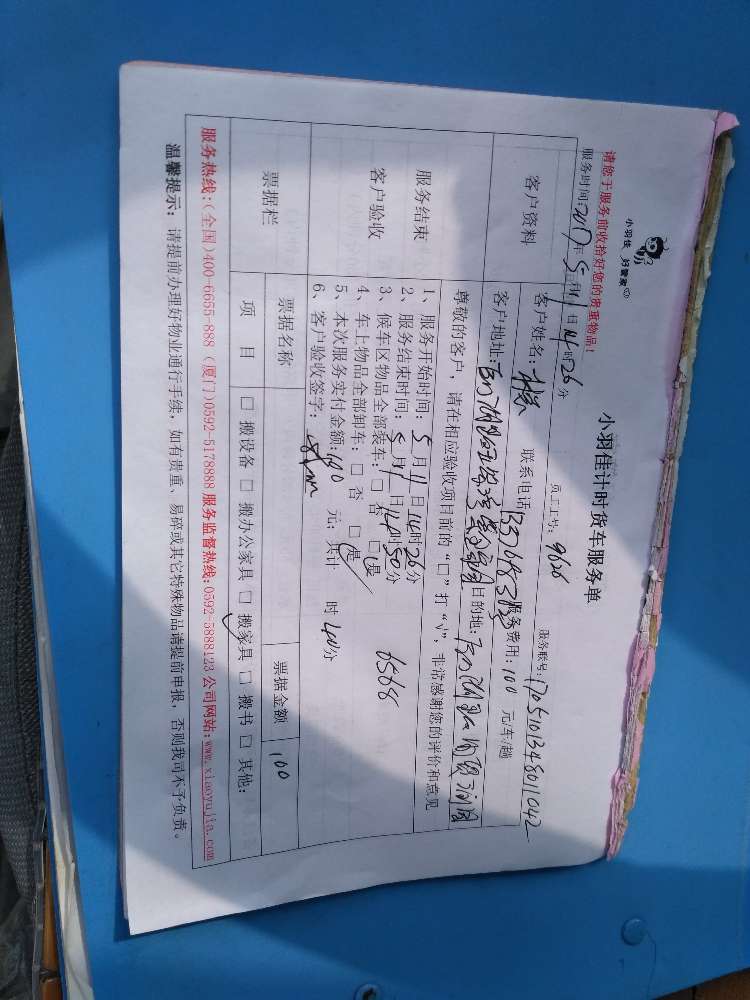 小羽佳 好管家
小羽佳计时货车服务单
请您于服务前收拾好您的贵重物品!
服务时间:2017年5月11日14时26分 员工工号:9626 服务账号:170510134801042
客户资料
客户姓名: 联系电话 服务费用:100 元/车/趟
客户地址: 目的地:
尊敬的客户,请在相应验收项目前的“口”打“√”,非常感谢您的评价和意见
服务结束
客户验收
1、服务开始时间:5月11日14时26分
2、服务结束时间:5月11日14时50分
3、候车区物品全部装车:口 否 口 是 6568
4、车上物品全部卸车:口 否 口 是
5、本次服务实付金额:100 元;共计 时40分
6、客户验收签字:
票据栏
票据名称 票据金额 100
项 目 口 搬设备 口 搬办公家具 口 搬家具 口 搬书 口 其他:
服务热线:(全国)400-6655-888 (厦门)0592-5178888 服务监督热线:0592-5888123 公司网站:www.xiaoyujia.com
温馨提示: 请提前办理好物业通行手续,如有贵重、易碎或其它特殊物品请提前申报,否则我司不予负责。